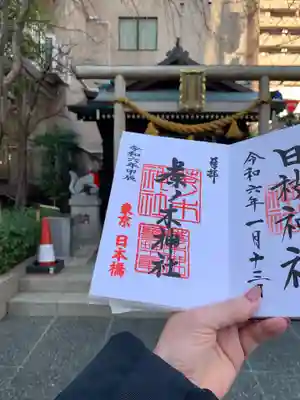 日枝神社
令和六年一月十三
奉拝
茶ノ木神社
令和六年甲辰
東京 日本橋